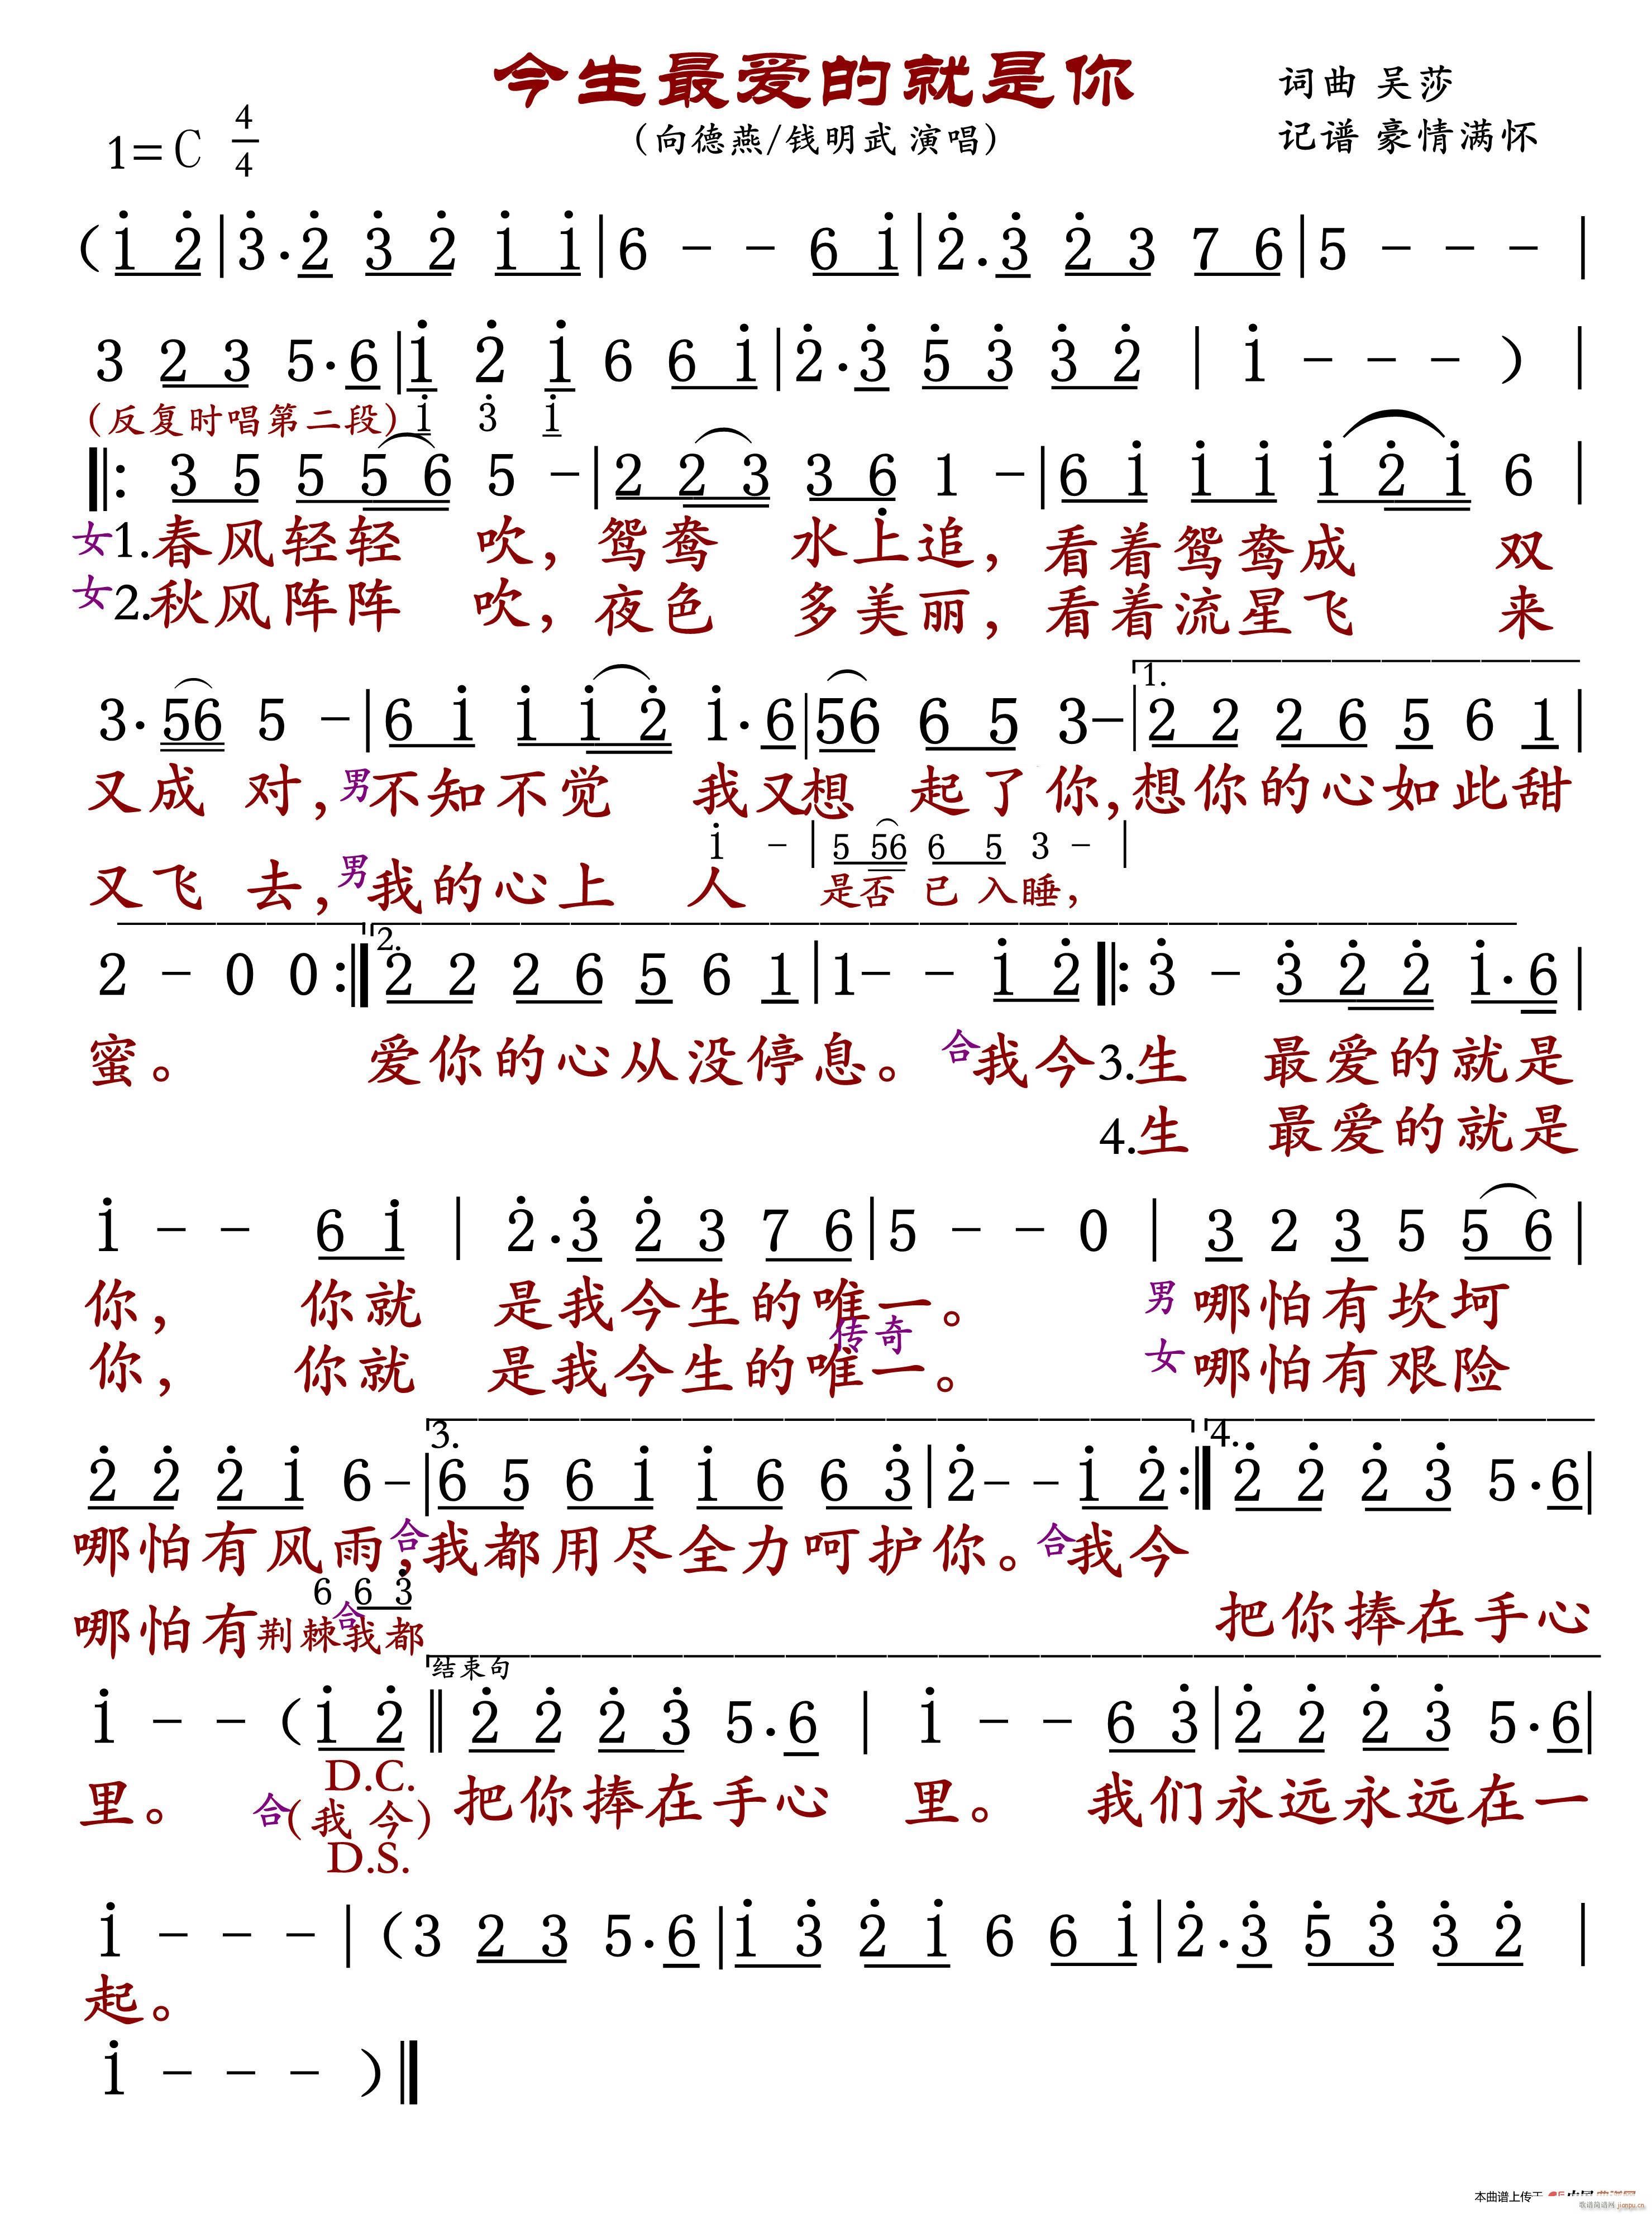 今生最爱的就是你
词曲 吴莎
(向德燕/钱明武 演唱)
记谱 豪情满怀
1=C 4/4
(i̇ 2̇|3̇·2̇ 3̇ 2̇ i̇ i̇|6 - - 6 i̇|2̇·3̇ 2̇ 3 7 6|5 - - -|
3 2 3 5·6|i̇ 2̇ i̇ 6 6 i̇|2̇·3̇ 5̇ 3̇ 3̇ 2̇|i̇ - - - )|
(反复时唱第二段) i̇ 3̇ i̇
‖: 3 5 5 5 6 5 -|2 2 3 3 6̣ 1 -|6 i̇ i̇ i̇ i̇ 2̇ i̇ 6|
女1.春风轻轻 吹，鸳鸯 水上追，看着鸳鸯成 双
女2.秋风阵阵 吹，夜色 多美丽，看着流星飞 来
3·56 5 -|6 i̇ i̇ i̇ 2̇ i̇·6|56 6 5 3-|1. 2 2 2 6 5 6 1|
又成 对，男不知不觉 我又想 起了你，想你的心如此甜
i̇ -|5 56 6 5 3 -|
又飞 去，男我的心上 人 是否 已 入睡，
2 - 0 0:‖2. 2 2 2 6 5 6 1|1- - i̇ 2̇‖: 3̇ - 3̇ 2̇ 2̇ i̇·6|
蜜。 爱你的心从没停息。合我今3.生 最爱的就是
4.生 最爱的就是
i̇ - - 6 i̇|2̇·3̇ 2̇ 3 7 6|5 - - 0|3 2 3 5 5 6|
你， 你就 是我今生的唯一。 男 哪怕有坎坷
传奇
你， 你就 是我今生的唯一。 女 哪怕有艰险
2̇ 2̇ 2̇ i̇ 6-|3. 6 5 6 i̇ i̇ 6 6 3̇|2̇- - i̇ 2̇:‖4. 2̇ 2̇ 2̇ 3̇ 5·6|
哪怕有风雨，合我都用尽全力呵护你。合我今
6 6 3̇
哪怕有荆棘合我都 把你捧在手心
结束句
i̇ - - (i̇ 2̇‖2̇ 2̇ 2̇ 3̇ 5·6|i̇ - - 6 3̇|2̇ 2̇ 2̇ 3̇ 5·6|
D.C.
里。 合(我 今) 把你捧在手心 里。 我们永远永远在一
D.S.
i̇ - - -|(3 2 3 5·6|i̇ 3̇ 2̇ i̇ 6 6 i̇|2̇·3̇ 5̇ 3̇ 3̇ 2̇|
起。
i̇ - - - )‖
本曲谱上传于
歌谱简谱网 jianpu.cn